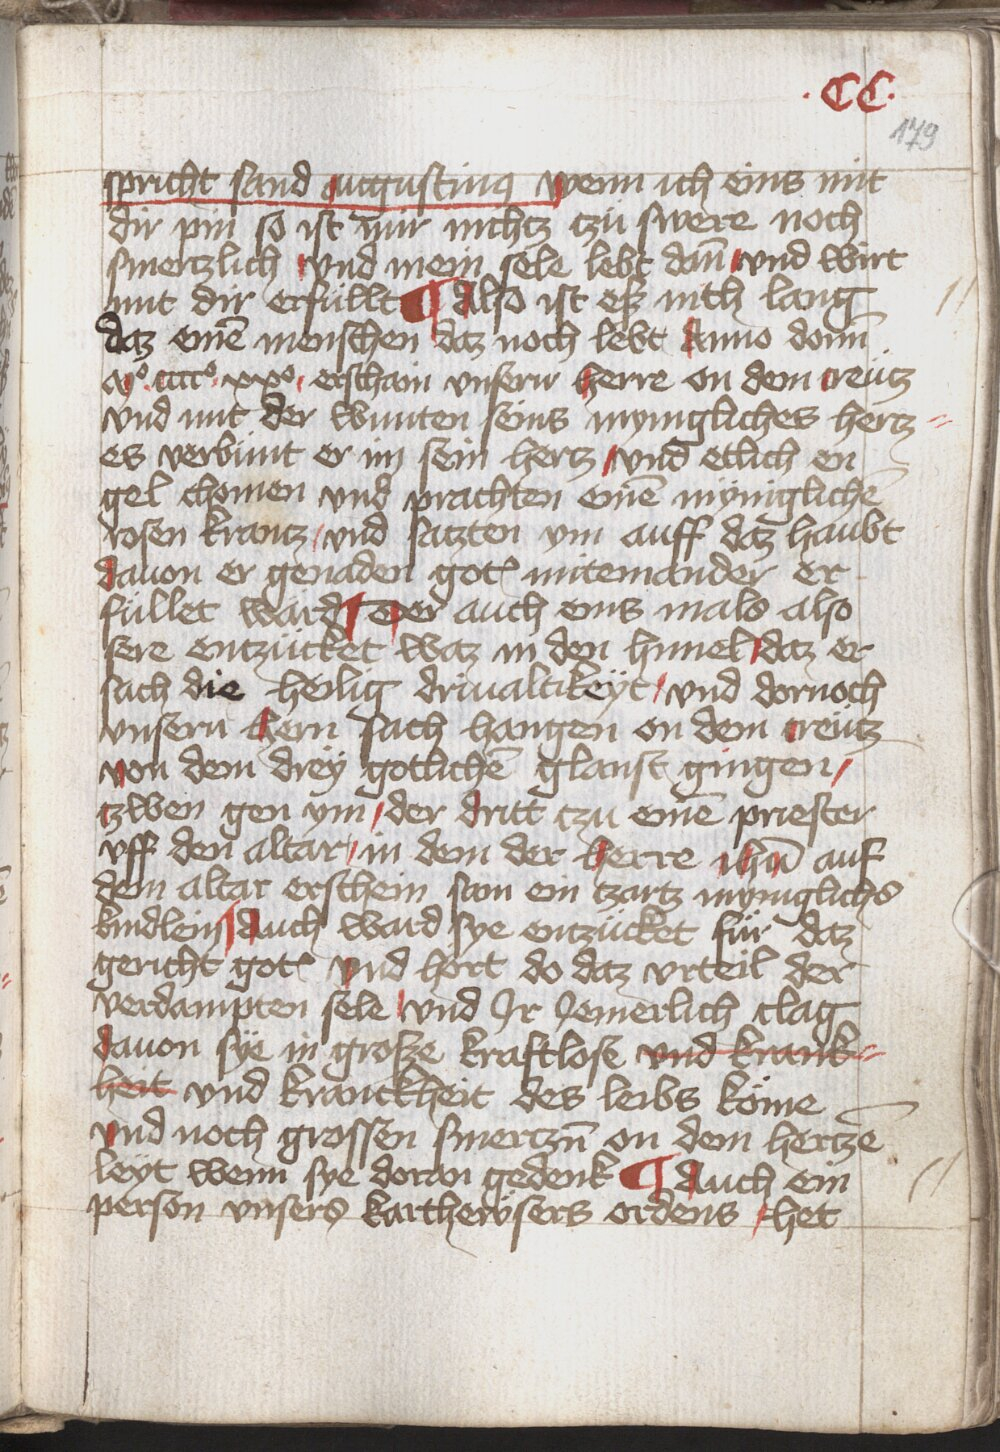 · CC ·
179
spricht sand augustinus wenn ich eins mit
dir pin so ist mir nichtz tzü swere noch
smertzlich vnd mein sele lebt dañ vnd wirt
mit dir erfüllt ¶ Also ist eß nith lang
daz einē menschen daz noch lebt Anno domī
Mº cccc⁰ xxº erschain vnserr herre on dem creütz
vnd mit der wunten seins mynigliches hertz=
es verbunt er im sein hertz vnd etlich en
gel chomen vnd prachten einē mÿniglichē
rosen krantz vnd satzten ym auff daz haubt
dauon er genaden gotz miteinander er
füllet ward ¶ Der auch eins mals also
sere entzücket waz in den himel daz er
sach die heilig driualtikeyt vnd dornoch
vnsern hern sach hangen on dem creütz
von dem dreÿ gotlichē glanst gingen
tzwen gen ym der dritt tzu einē priester
vff den altar in dem der herre ihū auf
dem altar erschein sam ein tzartz mÿniglichs
kindlein ¶ Auch ward sye entzücket für daz
gericht gotz vnd hort do daz vrteil der
verdampten sele vnd Jr Jemerlich clag
dauon sÿe in große kraftlose vnd krank=
heit vnd kranckheit des leibs köme
vnd noch grossen smertzñ on dem hertzē
leÿt wenn sye doran gedenk ¶ Auch ein
person vnsers kartheüsers ordens het